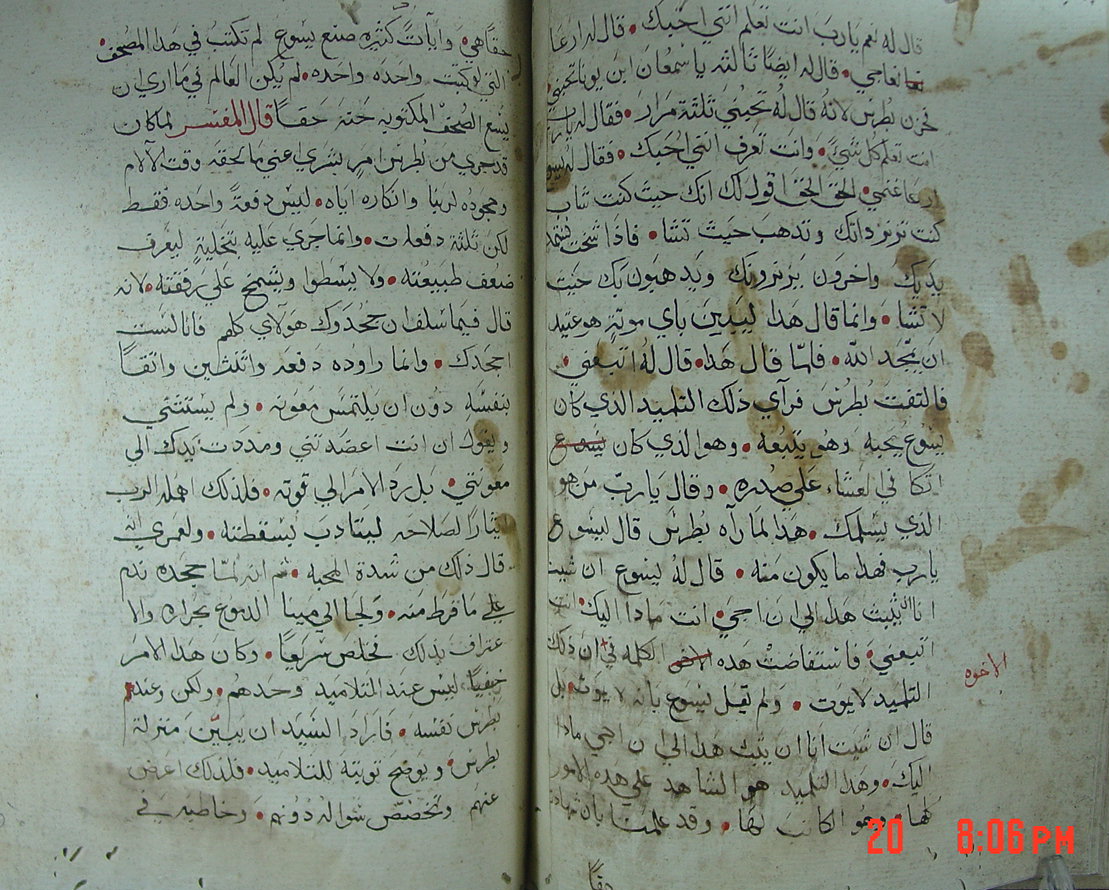 قال له نعم يارب انت تعلم انني احبك • قال له ارعا
نعاجي • قال له ايضًا ثالثه ياسمعان ابن يونا تحبني
فحزن بطرس لانهُ قال لهُ تحبني ثلثة مرار • فقال له يارب
انت تعلم كل شيً • وانت تعرف انني احبك • فقال له يسوع
ارعا غنمي • الحق الحق اقول لك انك حيث كنت شاب
كنت تزنر ذاتك وتدهب حيث تشا • فاذا شخت فتمد
يديك واخرون يزنرونك ويدهبون بك حيث
لا تشا • وانما قال هدا ليبين باي موتةٍ هو عتيد
ان يمجد الله • فلما قال هدا • قال لهُ اتبعني •
فالتفت بطرس فرآي ذلك التلميد الذي كان
يسوع يحبه وهو يتبعه • وهو الذي كان
اتكا في العشاء على صدره • وقال يارب من هو
الذي يسلمك • هدا لما رآه بطرس قال ليسوع
يارب فهدا ما يكون منه • قال لهُ يسوع ان شيت
انا ان يثبت هدا الي ان اجي • انت مادا اليك • انت
اتبعني • فاستفاضت هده الكلمه في ان ذلك
الاخوه
التلميد لا يموت • ولم يقل يسوع بانه لا يموت • بل
قال ان شيت انا ان يثبت هدا الي ان اجي مادا
اليك • وهدا التلميد هو الشاهد علي هده الامور
كلها • وهو الكاتب لها • وقد علمنا بان شهادته
حقًا
حقًا هي • وآيات كثيره صنع يسوع لم تكتب في هدا المصحف •
التي لو كتبت واحده واحده • لم يكن العالم في ما اري ان
يسع الصحف المكتوبه حتة حقًا قال المفسر لما كان
قد جري من بطرس امر بشري اعني ما لحقه وقت الآلام
وجحوده لربنا وانكاره اياه • ليس دفعةً واحده فقط
لكن ثلثة دفعات • وانما جري عليه بتخلية ليعرف
ضعف طبيعته • ولا يسطوا ويشمخ علي رفقته • لانه
قال فيما سلف ان جحدوك هولاي كلهم فانا لست
اجحدك • وانما راوده دفعه واثنتين واتقًا
بنفسه دون ان يلتمس معونه • ولم يستثني
ويقول ان انت اعضدتني ومددت يدك الي
معونتي • بل رد الامر الي قوته • فلذلك اهمله الرب
ايثارًا لصلاحه ليتادب بسقطته • ولعمري انه
قال ذلك من شدة المحبه • ثم انه لما جحده ندم
علي ما فرط منه • ولجا الي مينا الدموع بحراره والا
عتراف بذلك فخلص سريعًا • وكان هدا الامر
خفيًا ليس عند التلاميد وحدهم • ولكن وعند
بطرس نفسه • فاراد السيد ان يبين منزلة
بطرس • ويوضح توبته للتلاميد • فلذلك اعرض
عنهم وتخصص سواله دونهم • وخاطبه في
20 8:06 PM